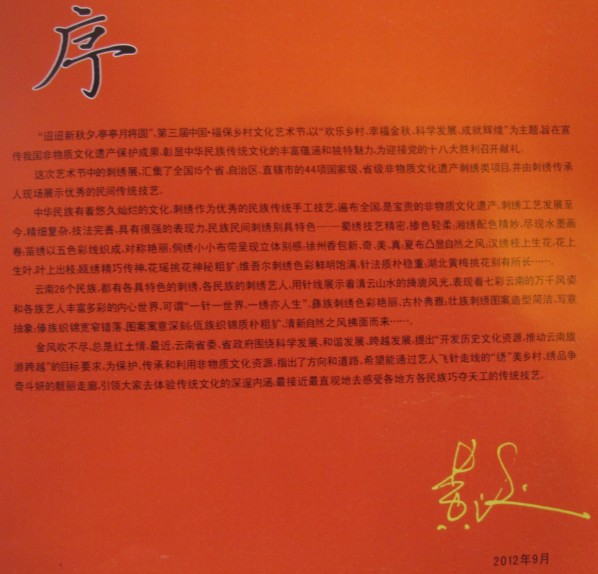 序
“迢迢新秋夕,亭亭月将圆”,第三届中国·福保乡村文化艺术节,以“欢乐乡村,幸福金秋,科学发展,成就辉煌”为主题,旨在宣
传我国非物质文化遗产保护成果,彰显中华民族传统文化的丰富蕴涵和独特魅力,为迎接党的十八大胜利召开献礼.
这次艺术节中的刺绣展,汇集了全国15个省、自治区、直辖市的44项国家级、省级非物质文化遗产刺绣类项目,并由刺绣传承
人现场展示优秀的民间传统技艺.
中华民族有着悠久灿烂的文化,刺绣作为优秀的民族传统手工技艺,遍布全国,是宝贵的非物质文化遗产,刺绣工艺发展至
今,精细复杂,技法完善,具有很强的表现力,民族民间刺绣别具特色……蜀绣技艺精密,掺色轻柔;湘绣配色精妙,尽现水墨画
卷;苗绣以五色彩线织成,对称艳丽;侗绣小小布带呈现立体别感;徐州香包新、奇、美、真;夏布凸显自然之风;汉绣枝上生花,花上
生叶,叶上出枝;瓯绣精巧传神,花瑶挑花神秘粗犷;维吾尔刺绣色彩鲜明饱满,针法质朴稳重;湖北黄梅挑花别有所长…….
云南26个民族,都有各具特色的刺绣,各民族的刺绣艺人,用针线展示着滇云山水的旖旎风光,表现着七彩云南的万千风姿
和各族艺人丰富多彩的内心世界,可谓“一针一世界,一绣亦人生”.彝族刺绣色彩艳丽,古朴典雅;壮族刺绣图案造型简洁,写意
抽象;傣族织锦宽窄错落,图案寓意深刻;佤族织锦质朴粗犷,清新自然之风拂面而来…….
金风吹不尽,总是红土情.最近,云南省委、省政府围绕科学发展、和谐发展、跨越发展,提出“开发历史文化资源,推动云南旅
游跨越”的目标要求,为保护、传承和利用非物质文化资源,指出了方向和道路,希望能通过艺人飞针走线的“绣”美乡村、绣品争
奇斗妍的靓丽走廊,引领大家去体验传统文化的深邃内涵,最接近最直观地去感受各地方各民族巧夺天工的传统技艺.
2012年9月